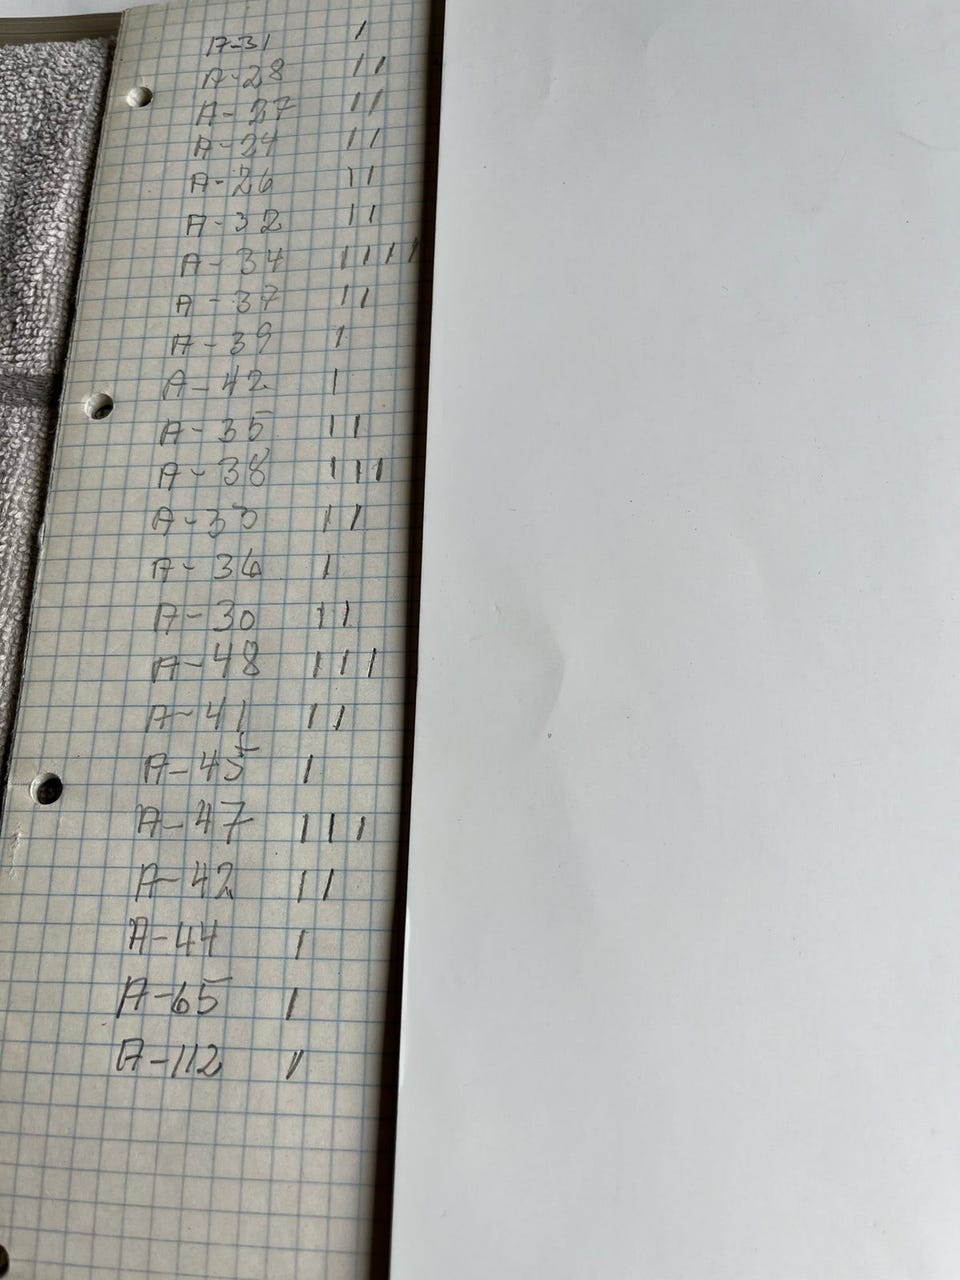 A-31 I
A-28 II
A-27 II
A-24 II
A-26 II
A-32 II
A-34 IIII
A-37 II
A-39 I
A-42 I
A-35 II
A-38 III
A-33 II
A-36 I
A-30 II
A-48 III
A-41 II
A-45 I
A-47 III
A-42 II
A-44 I
A-65 I
A-112 I